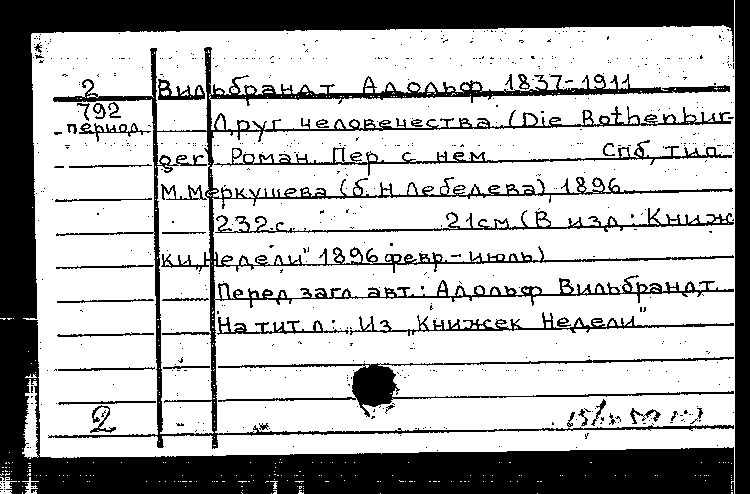 2 Вильбрандт, Адольф, 1837-1911
792
период. Друг человечества (Die Rothenbur-
ger) Роман. Пер. с нем Спб, тип.
М. Меркушева (б. Н Лебедева), 1896
232 с. 21см. (В изд.: Книж
ки „Недели" 1896 февр.- июль)
Перед загл. авт.: Адольф Вильбрандт.
На тит. л.: „Из „Книжек Недели"
2